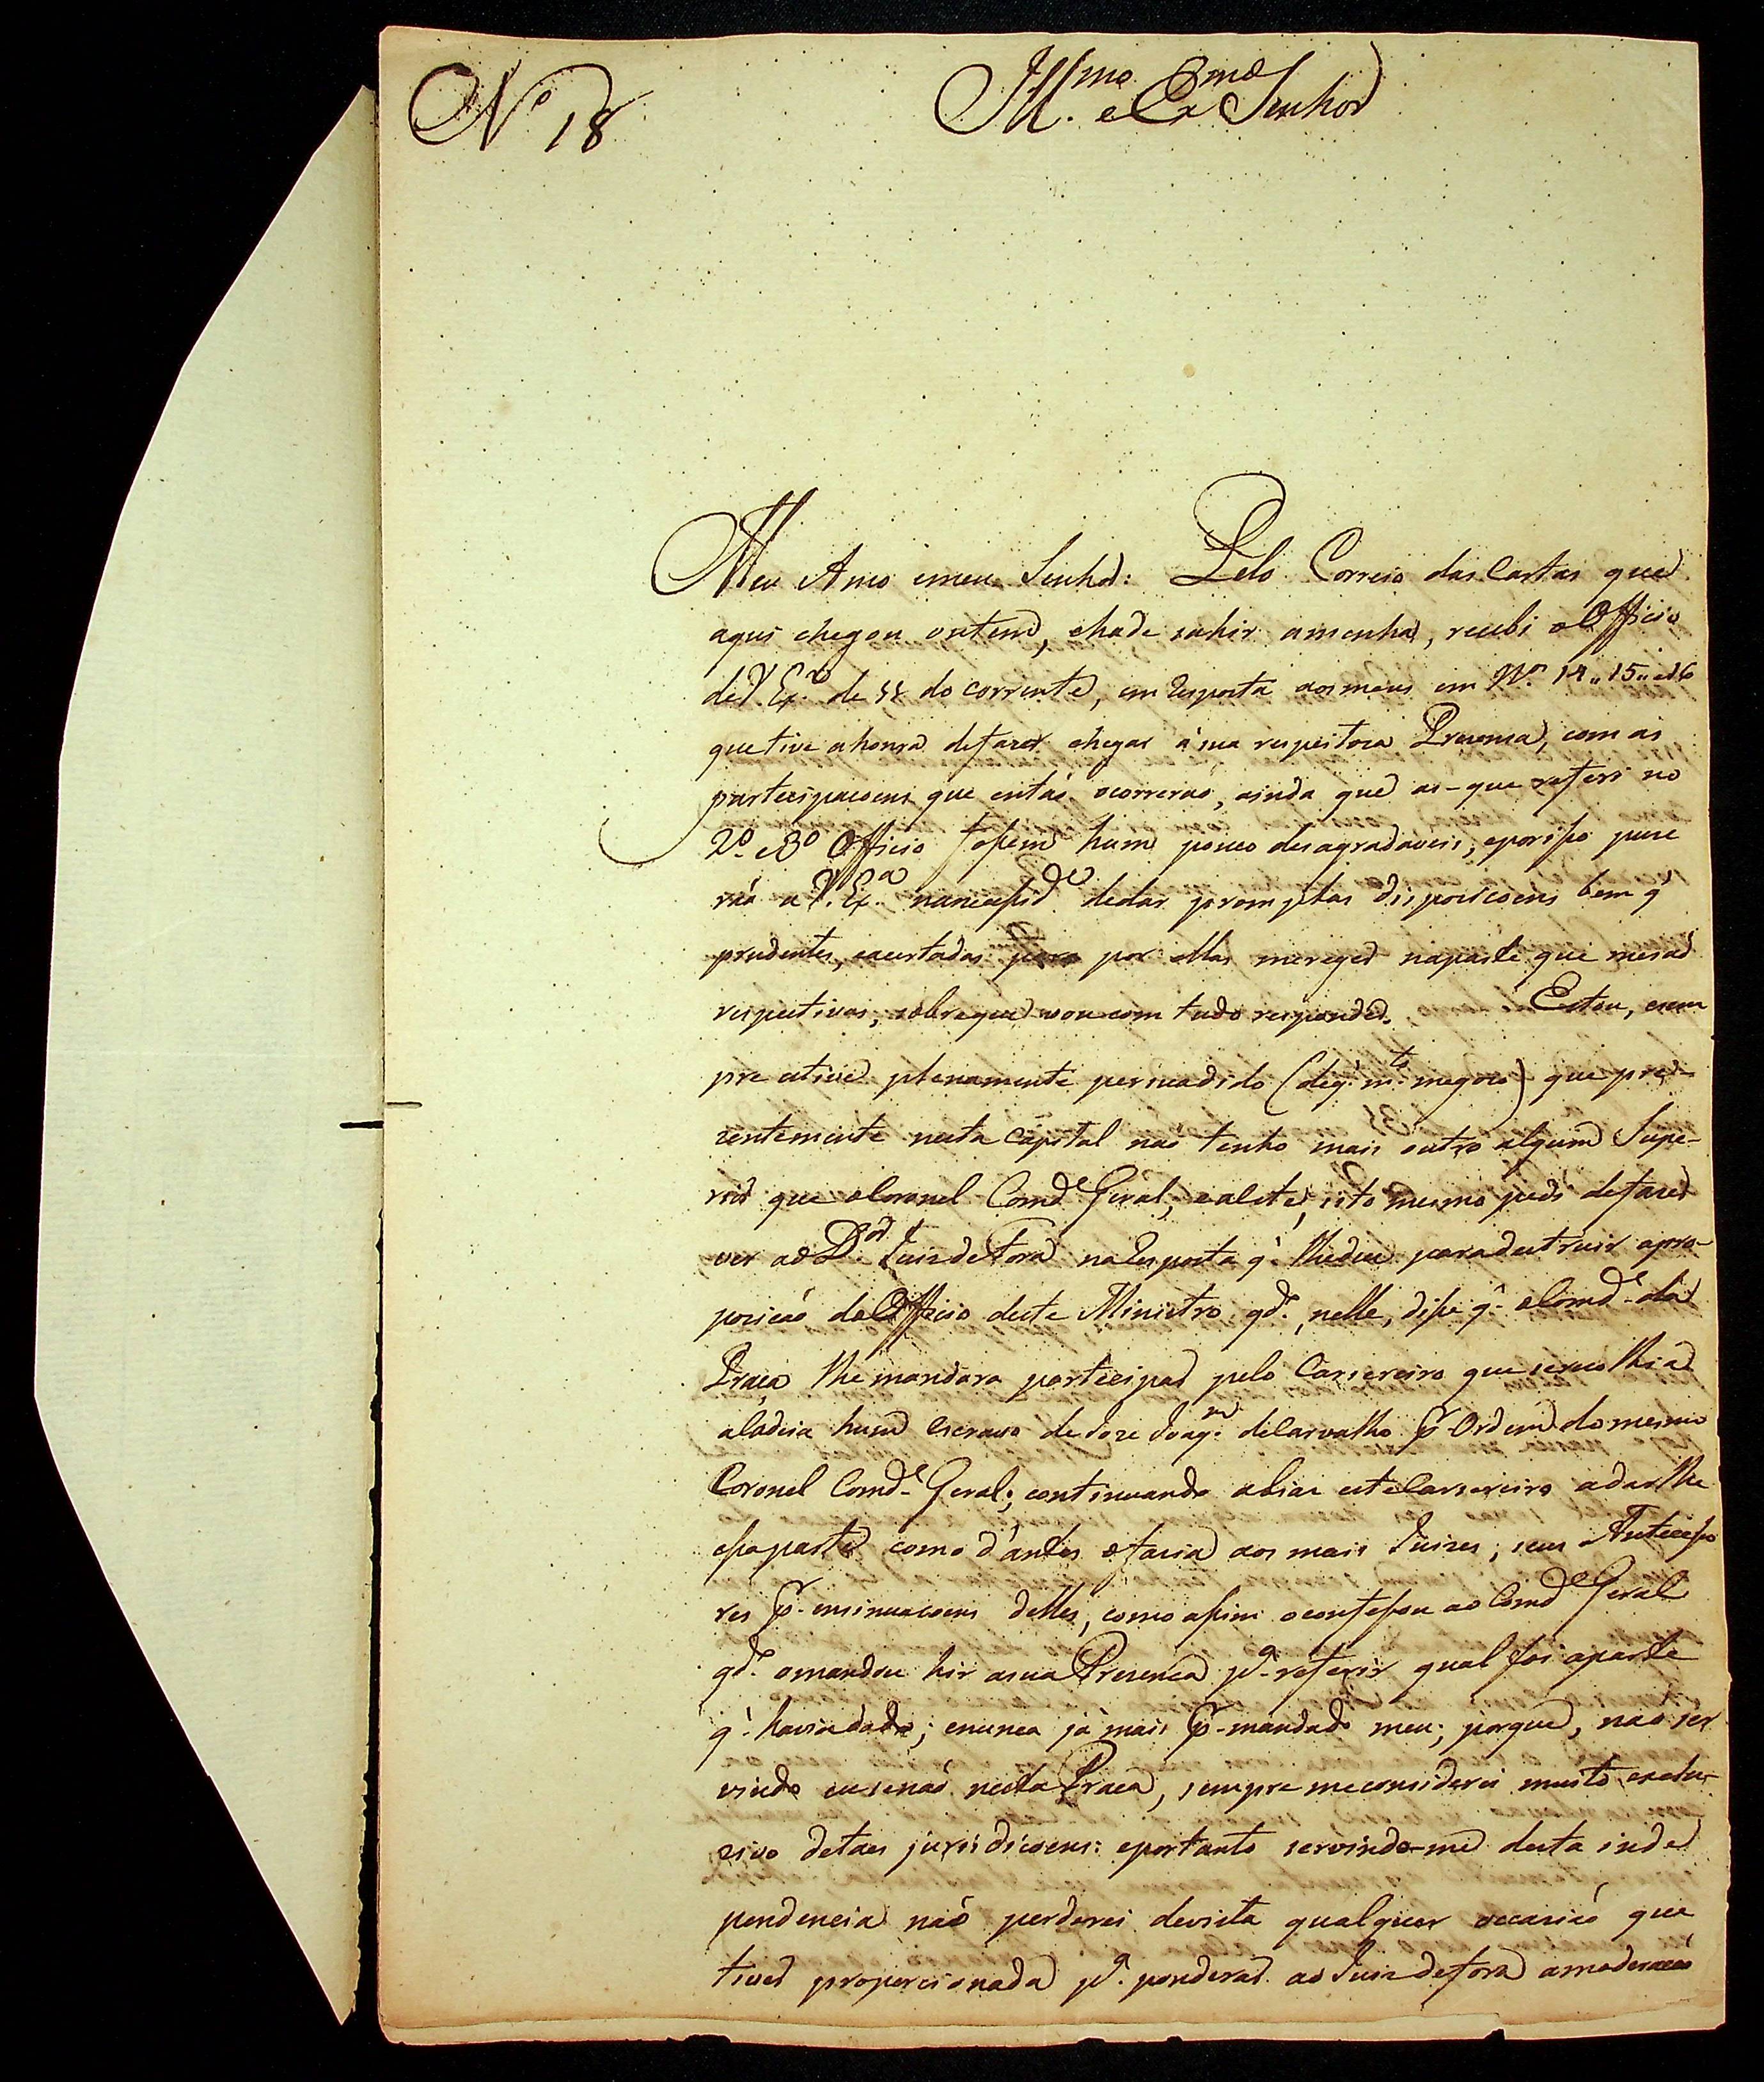 Nº 18
Ill.mo e Ex.mo Senhor
Meu Amo emeu Senhor: Pelo Correio das Cartas que
aqui chegou ontem, ehade sahir amenhã, recebi o Officio
de V. Ex.ª de 11 do corrente, em resposta aos meus em Nº 14,, 15,, e 16
que tive a honra de fazer chegar á sua respeitosa Prezensa, com as
partecipacoens que entaõ ocorreraõ, ainda que as-que referi no
2º e 3º Officio fossem hum pouco desagradaveis, eporisso puze
raõ a V. Ex.ª nanecessid.e dedar promptas disposicoens bem q'
prudentes, eacertadas por ellas na parte que mesaõ
respectivas, sobreque vou com tudo responder. Estou, esem
pre estive plenamente persuadido (deq' m.to megozo) que pre-
zentemente nesta Capital naõ tenho mais outro algum Supe-
rior que oCoronel Comd.e Geral, eaeste, isto mesmo pedi defazer
ver ao D.or Juiz de Fora na resposta q' lhedei para destruir apro-
posicaõ do Officio deste Ministro qd.º, nelle, disse q' o Comd.e da
Praca lhe mandara partecipar pelo Carsereiro que serecolhia
aCadeia hum escravo de Joze Joaq.m deCarvalho p. Ordem do mesmo
Coronel Comd.e Geral; continuando aliaz este Carsereiro adarlhe
essa parte como d'antes ofazia aos mais Juizes, seus Antecesso
res p. ensinuacoens delles, como assim oconfessou ao Comd.e Geral
qd.º omandou hir asua Presenca p.ª referir qual foi aparte
q' havia dado; enunca já mais p. mandado meu; porque, naõ ser
vindo eu senaõ nesta Praca, sempre meconsiderei muito exclu-
zivo detaes jurisdicoens: eportanto servindo-me desta inde
pendencia naõ perderei devista qualquer occaziaõ que
tiver propercionada p.ª ponderar ao Juiz defora amoderacaõ